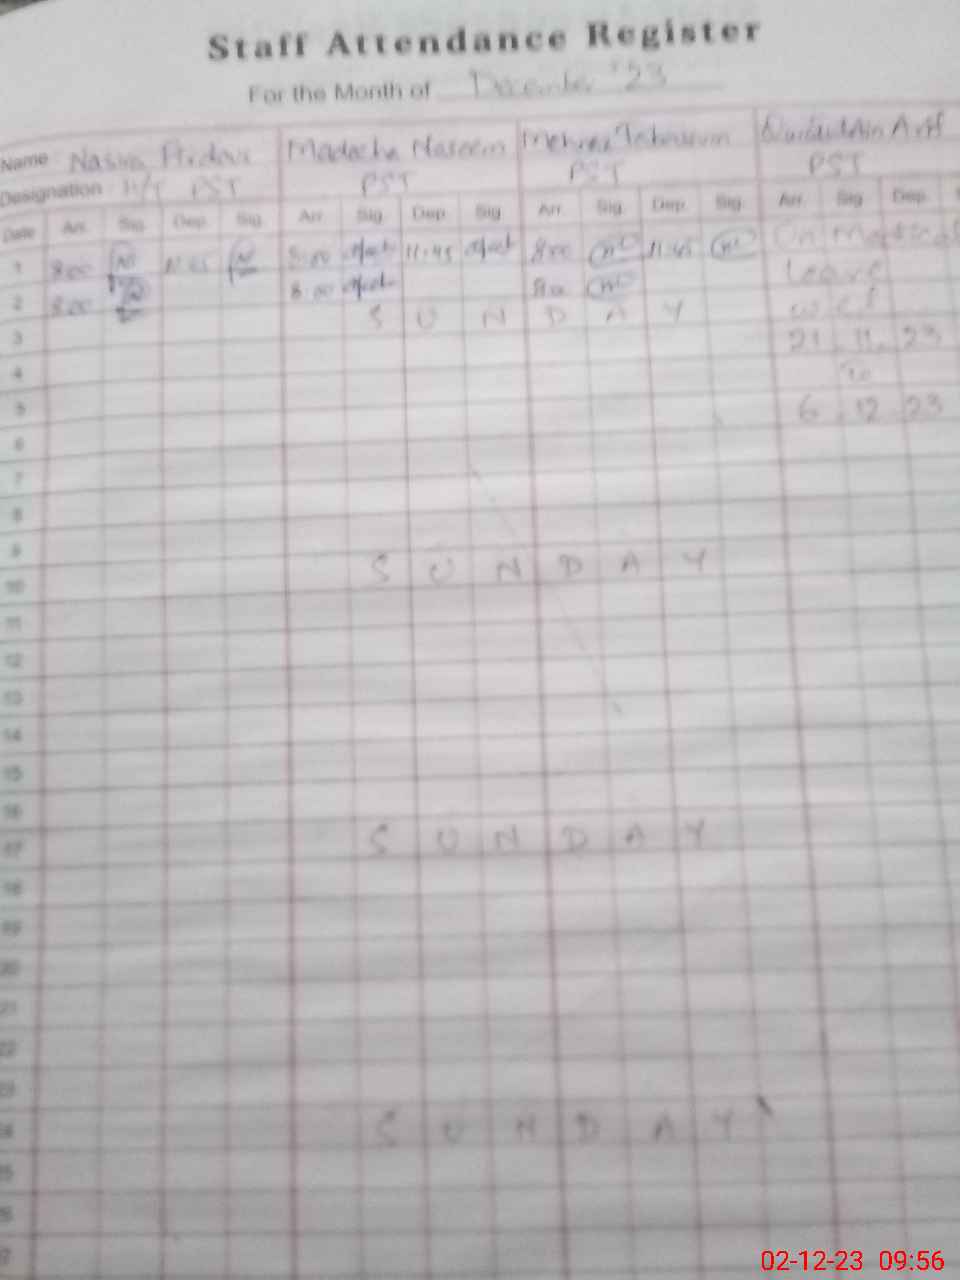 Staff Attendance Register
For the Month of December '23
Name Nasim Firdous Madecha Naseem Mehnaz Tabassum Qurratulain Arif
Designation H/T PST PST PST PST
Date Arr. Sig. Dep. Sig. Arr. Sig. Dep. Sig. Arr. Sig. Dep. Sig. Arr. Sig. Dep.
1 8:00 11:45 8:00 11:45 8:00 11:45 On Maternal
2 8:00 8:00 8:00 Leave
3 S U N D A Y w.e.f
4 21 . 11 . 23
5 to
6 . 12 . 23
6
7
8
9
10 S U N D A Y
11
12
13
14
15
16
17 S U N D A Y
18
19
20
21
22
23
24 S U N D A Y
25
26
27
02-12-23 09:56